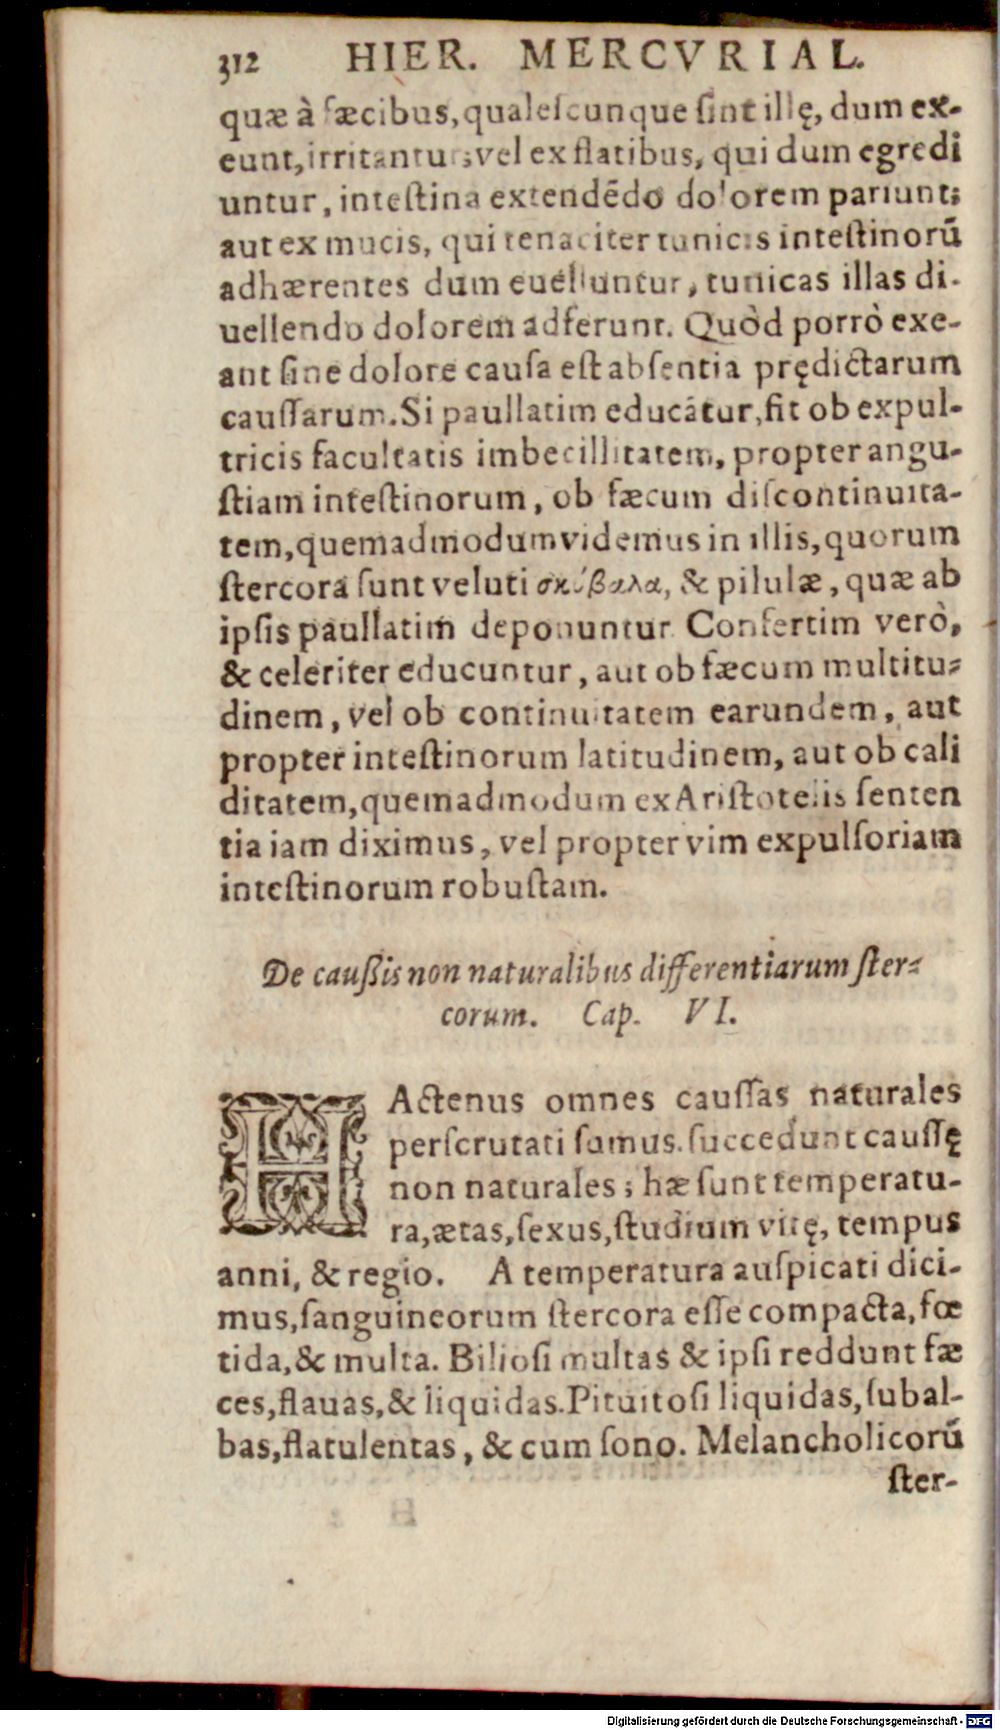 312 HIER. MERCVRIAL.
quæ à fæcibus, qualeſcunque ſint illę, dum ex-
eunt, irritantur; vel ex flatibus, qui dum egredi
untur, inteſtina extendẽdo dolorem pariunt;
aut ex mucis, qui tenaciter tunicis inteſtinorũ
adhærentes dum euelluntur, tunicas illas di-
uellendo dolorem adferunt. Quòd porrò exe-
ant ſine dolore cauſa eſt abſentia prędictarum
cauſſarum. Si paullatim educãtur, fit ob expul-
tricis facultatis imbecillitatem, propter angu-
ſtiam inteſtinorum, ob fæcum diſcontinuita-
tem, quemadmodum videmus in illis, quorum
ſtercora ſunt veluti σκύβαλα, & pilulæ, quæ ab
ipſis paullatim deponuntur. Confertim verò,
& celeriter educuntur, aut ob fæcum multitu-
dinem, vel ob continuitatem earundem, aut
propter inteſtinorum latitudinem, aut ob cali
ditatem, quemadmodum ex Ariſtotelis ſenten
tia iam diximus, vel propter vim expulſoriam
inteſtinorum robuſtam.
De cauſſis non naturalibus differentiarum ſter-
corum. Cap. VI.
HActenus omnes cauſſas naturales
perſcrutati ſumus. ſuccedunt cauſſę
non naturales; hæ ſunt temperatu-
ra, ætas, ſexus, ſtudium vitę, tempus
anni, & regio. A temperatura auſpicati dici-
mus, ſanguineorum ſtercora eſſe compacta, fœ
tida, & multa. Bilioſi multas & ipſi reddunt fæ
ces, flauas, & liquidas. Pituitoſi liquidas, ſubal-
bas, flatulentas, & cum ſono. Melancholicorũ
ſter-
Digitalisierung gefördert durch die Deutsche Forschungsgemeinschaft - DFG